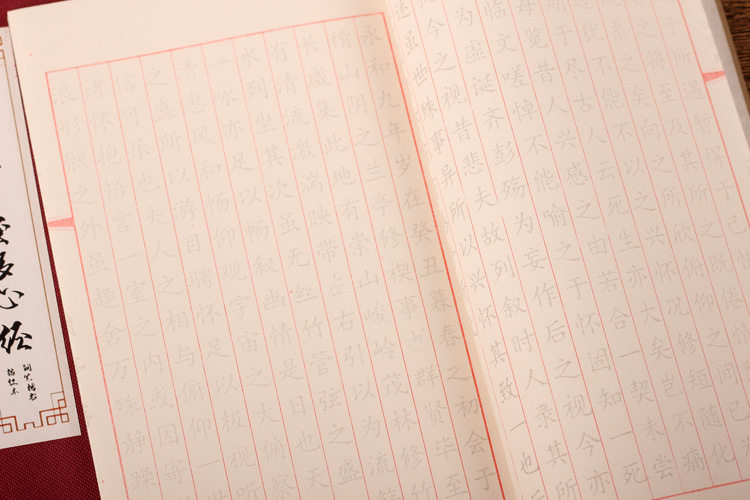 所遇暂得于己
之将至及其所之既倦
系之矣向之所欣俯仰
犹不能不以之兴怀况修短随化
于尽古人云死生亦大矣岂不痛
览昔人兴感之由若合一契未尝
临文嗟悼不能喻之于怀固知一死
为虚诞齐彭殇为妄作后之视今亦
今之视昔悲夫故列叙时人录其
述虽世殊事异所以兴怀其致一也
永和九年岁在癸丑暮春之初会于
稽山阴之兰亭修禊事也群贤毕至
长咸集此地有崇山峻岭茂林修竹
有清流激湍映带左右引以为流
水列坐其次虽无丝竹管弦之盛
一咏亦足以畅叙幽情是日也天
清惠风和畅仰观宇宙之大俯察
之盛所以游目骋怀足以极视听
信可乐也夫人之相与俯仰一
诸怀抱悟言一室之内或因寄
浪形骸之外虽趣舍万殊静躁
多心经
钢笔楷书
描红本